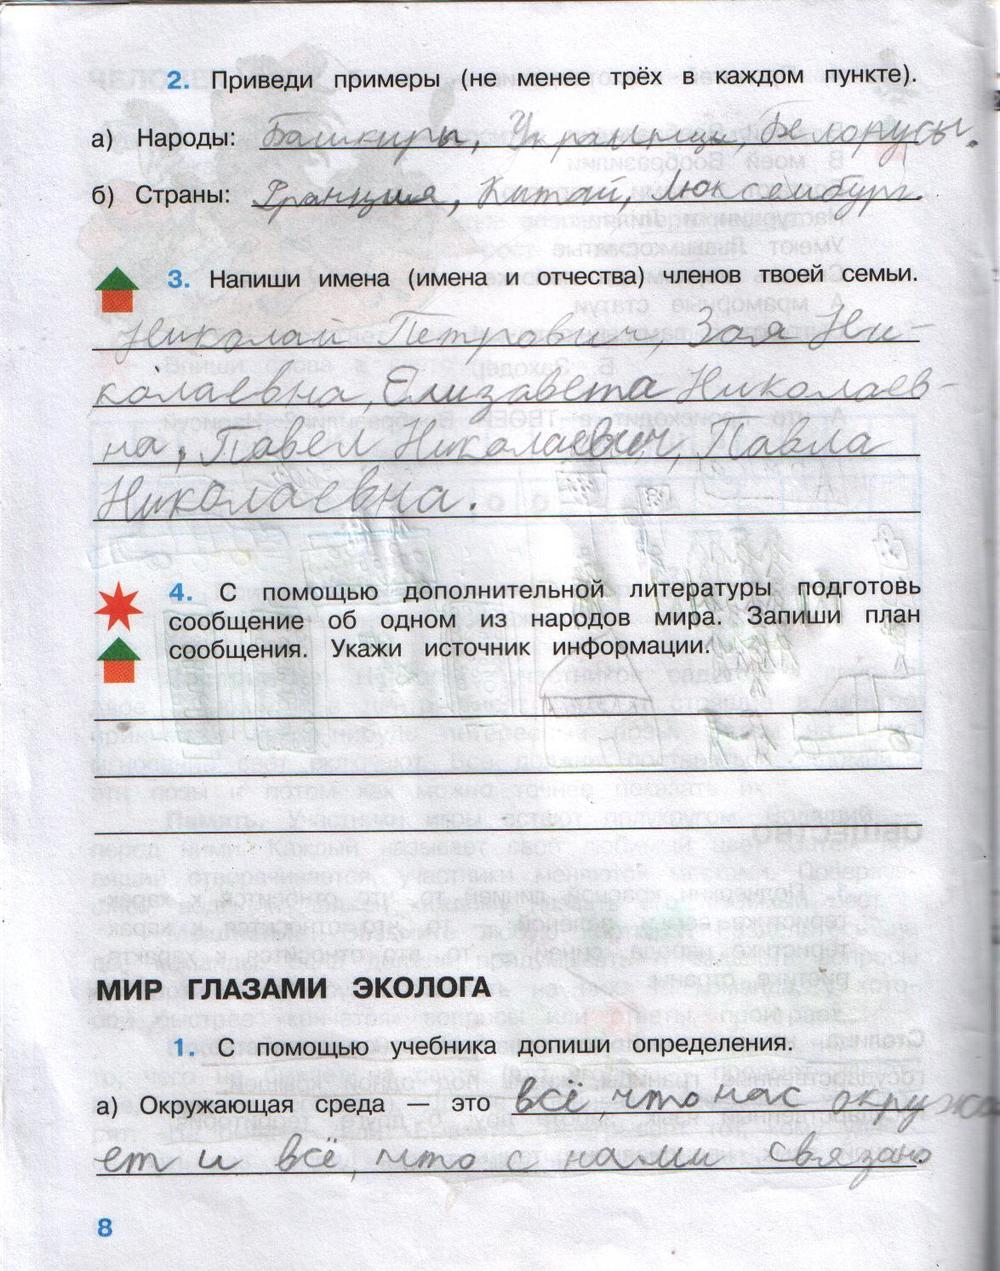 2. Приведи примеры (не менее трёх в каждом пункте).
а) Народы: Башкиры, Украинцы, Белорусы.
б) Страны: Франция, Китай, Люксембург.
3. Напиши имена (имена и отчества) членов твоей семьи.
Николай Петрович, Зоя Ни-
колаевна, Елизавета Николаев-
на, Павел Николаевич, Павла
Николаевна.
4. С помощью дополнительной литературы подготовь
сообщение об одном из народов мира. Запиши план
сообщения. Укажи источник информации.
МИР ГЛАЗАМИ ЭКОЛОГА
1. С помощью учебника допиши определения.
а) Окружающая среда — это всё, что нас окружа
ет и всё, что с нами связано
8